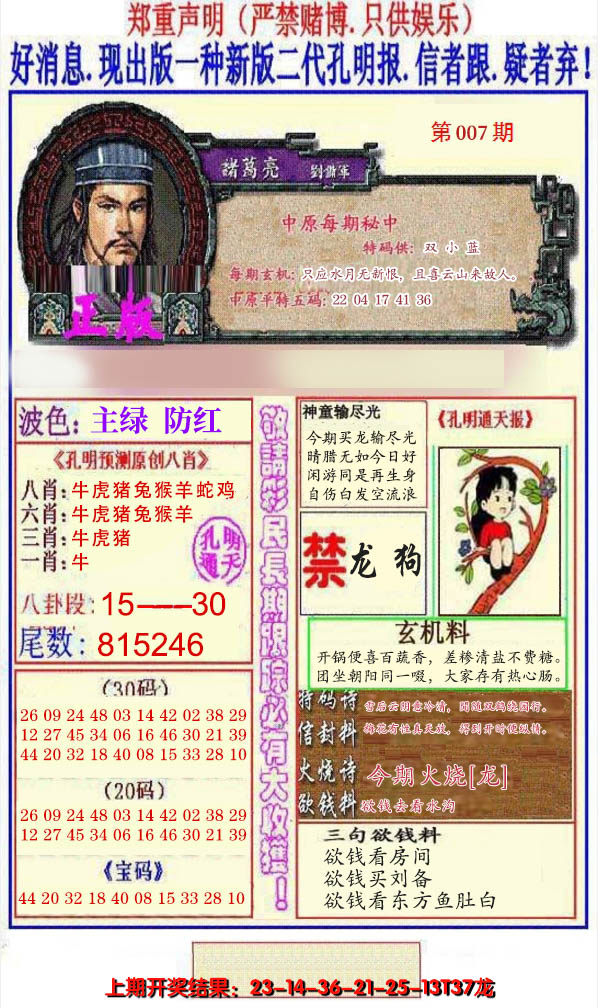 郑重声明（严禁赌博.只供娱乐）
好消息.现出版一种新版二代孔明报.信者跟.疑者弃！
第007期
諸葛亮 劉備軍
中原每期秘中
特码供：双小蓝
每期玄机：只应水月无新恨，且喜云山来故人。
中原平特五码：22 04 17 41 36
正版
波色：主绿 防红
《孔明预测原创八肖》
八肖：牛虎猪兔猴羊蛇鸡
六肖：牛虎猪兔猴羊
三肖：牛虎猪
一肖：牛
孔明通天
八卦段：15——30
尾数：815246
（30码）
26 09 24 48 03 14 42 02 38 29
12 27 45 34 06 16 46 30 21 39
44 20 32 18 40 08 15 33 28 10
（20码）
26 09 24 48 03 14 42 02 38 29
12 27 45 34 06 16 46 30 21 39
《宝码》
44 20 32 18 40 08 15 33 28 10
敬請彩民長期跟踪必有大收獲！
神童输尽光
今期买龙输尽光
晴腊无如今日好
闲游同是再生身
自伤白发空流浪
《孔明通天报》
禁 龙 狗
玄机料
开锅便喜百蔬香，差糁清盐不费糖。
团坐朝阳同一啜，大家存有热心肠。
特码诗
信封料
雪后云阴意冷清，闻随双鹤绕园行。
梅花有性真天放，得到开时便纵情。
火烧诗 今期火烧[龙]
欲钱料 欲钱去看水沟
三句欲钱料
欲钱看房间
欲钱买刘备
欲钱看东方鱼肚白
上期开奖结果：23-14-36-21-25-13T37龙